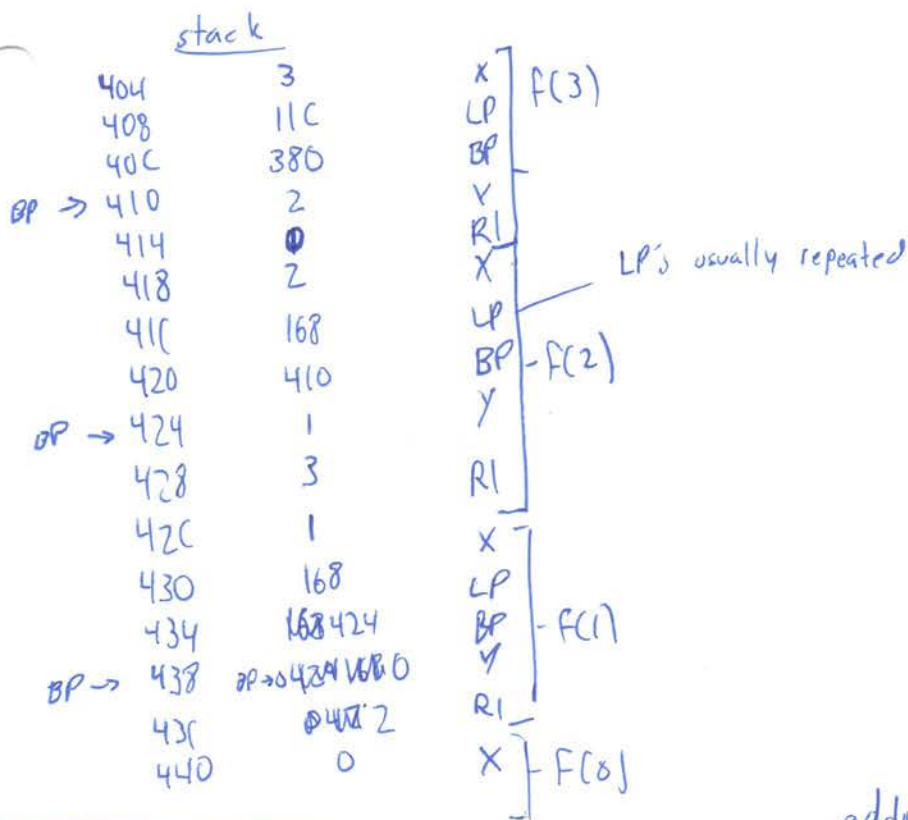 stack
404 3 X f(3)
408 11C LP
40C 380 BP
BP → 410 2 Y
414 R1
418 2 X LP's usually repeated
41C 168 LP
420 410 BP f(2)
BP → 424 1 Y
428 3 R1
42C 1 X
430 168 LP
434 424 BP f(1)
BP → 438 0 Y
43C 2 R1
440 0 X f(0)